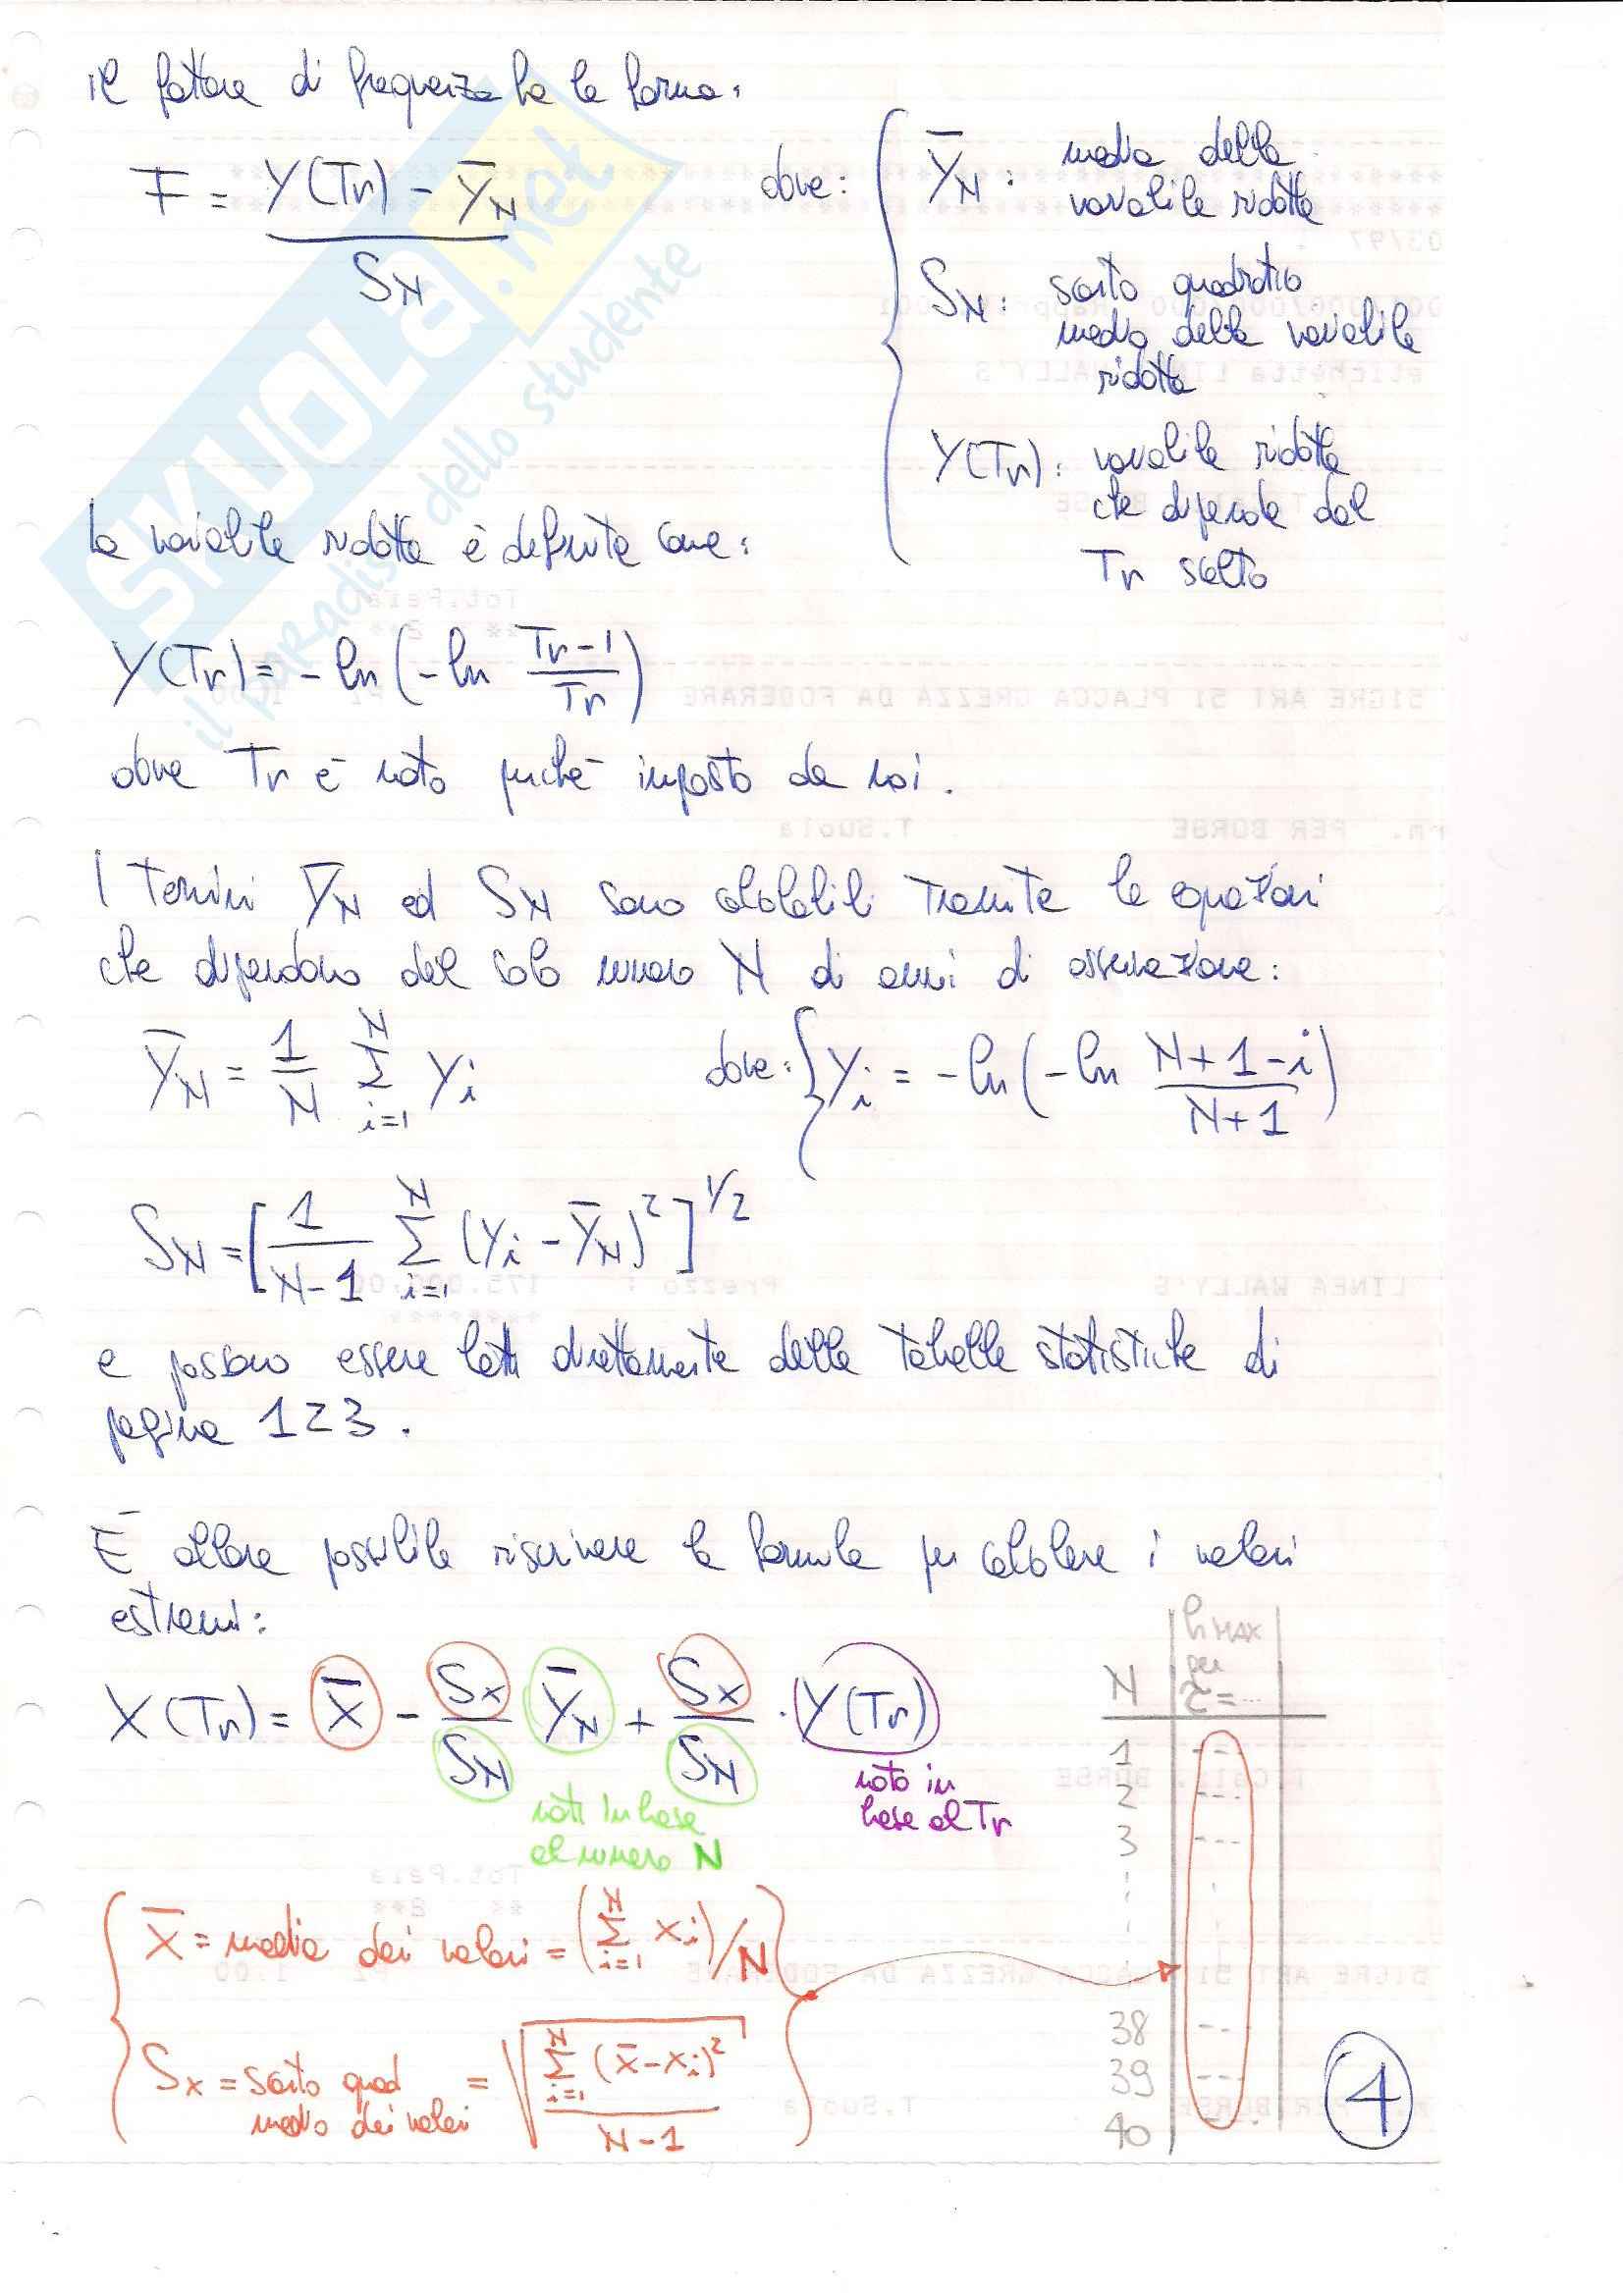 il fattore di frequenza ha la forma:
F = (Y(Tr) - ȲN) / SN
dove:
ȲN: media della
variabile ridotta
SN: scarto quadratico
medio della variabile
ridotta
Y(Tr): variabile ridotta
che dipende dal
Tr scelto
La variabile ridotta è definita come:
Y(Tr) = -ln(-ln (Tr-1)/Tr)
dove Tr è noto perché imposto da noi.
I termini ȲN ed SN sono calcolabili tramite le equazioni
che dipendono dal solo numero N di anni di osservazione:
ȲN = 1/N Σ i=1 N Yi dove: { Yi = -ln(-ln (N+1-i)/(N+1))
SN = [1/(N-1) Σ i=1 N (Yi - ȲN)²]^1/2
e possono essere letti direttamente dalle tabelle statistiche di
pagina 123.
È allora possibile riscrivere la formula per calcolare i valori
estremi:
X(Tr) = X̄ - Sx/SN ȲN + Sx/SN · Y(Tr)
noti in base
al numero N
noto in
base al Tr
X̄ = media dei valori = (Σ i=1 N xi)/N
Sx = scarto quad
medio dei valori = √(Σ i=1 N (x̄-xi)² / (N-1))
N hMAX
per
τ=...
1 ---
2 ---
3 ---
38 --
39 ---
40
4
SKUOLA.net
il paradiso dello studente